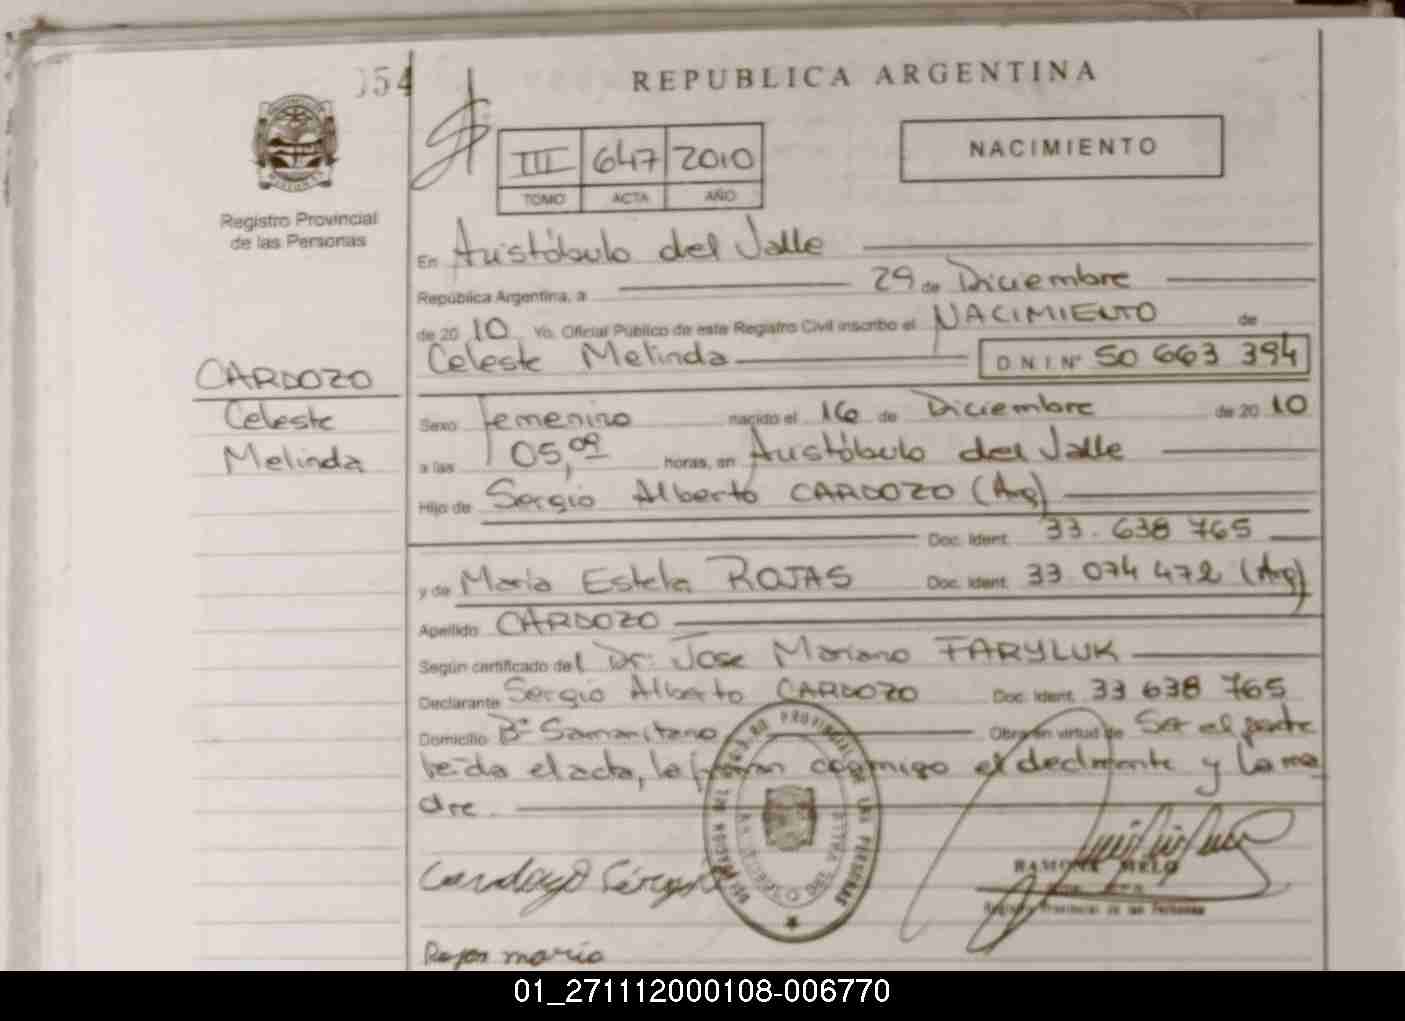 054
REPUBLICA ARGENTINA
III 647 2010
TOMO ACTA AÑO
NACIMIENTO
Registro Provincial
de las Personas
CARDOZO
Celeste
Melinda
En Aristóbulo del Valle
República Argentina, a 29 de Diciembre
de 2010 Yo, Oficial Público de este Registro Civil inscribo el NACIMIENTO de
Celeste Melinda D.N.I. Nº 50 663 394
Sexo femenino nacido el 16 de Diciembre de 2010
a las 05,00 horas, en Aristóbulo del Valle
Hijo de Sergio Alberto CARDOZO (Arg)
Doc. Ident. 33.638 765
y de Maria Estela ROJAS Doc. Ident. 33 074 472 (Arg)
Apellido CARDOZO
Según certificado del Dr. Jose Mariano FARYLUK
Declarante Sergio Alberto CARDOZO Doc. Ident. 33 638 765
Domicilio Bº Samaritano Obra en virtud de Ser el padre
leida el acta, la firman conmigo el declarante y la ma
dre.
Cardozo Sergio
RAMONA MELO
Registro Provincial de las Personas
REGISTRO PROVINCIAL DE LAS PERSONAS
DEL VALLE
Rojas maria
01_271112000108-006770